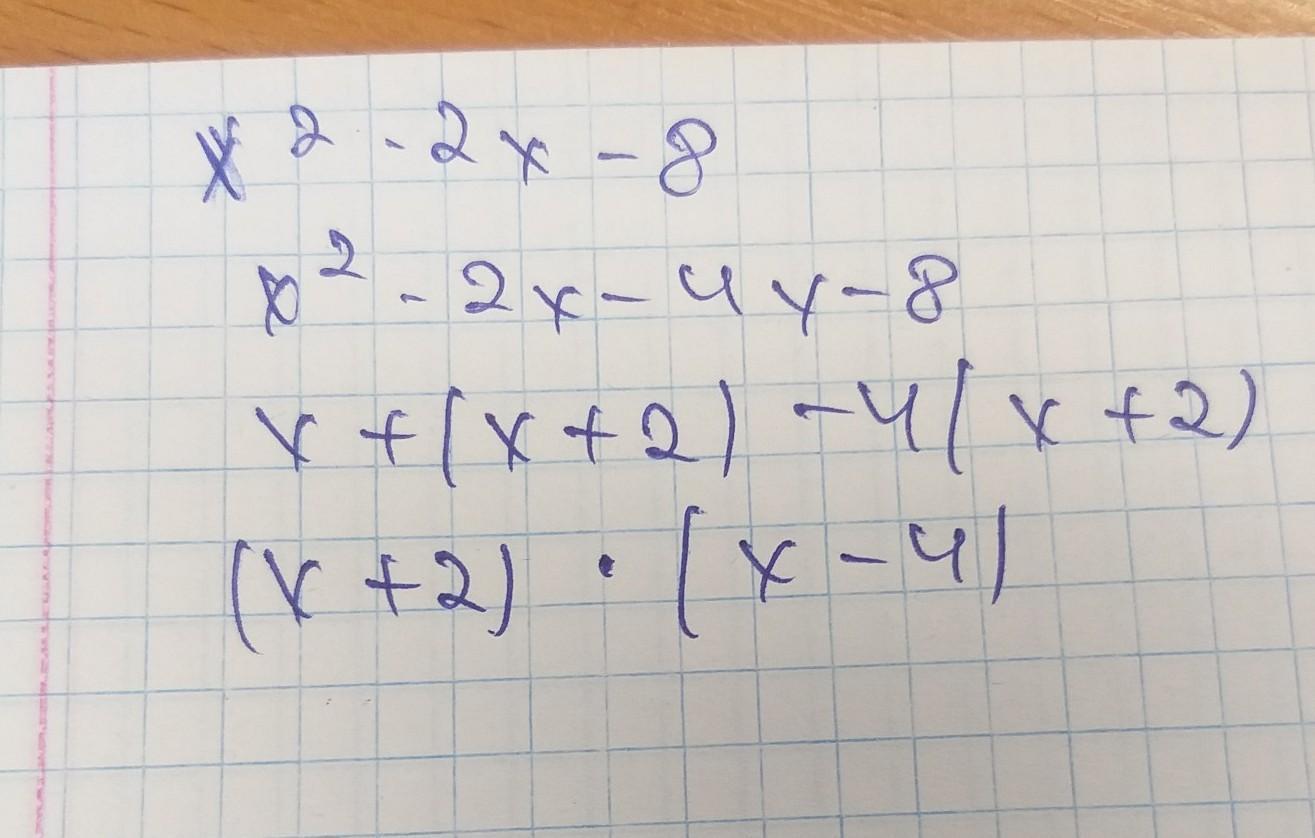 x² - 2x - 8
x² - 2x - 4x - 8
x + (x + 2) - 4(x + 2)
(x + 2) · (x - 4)